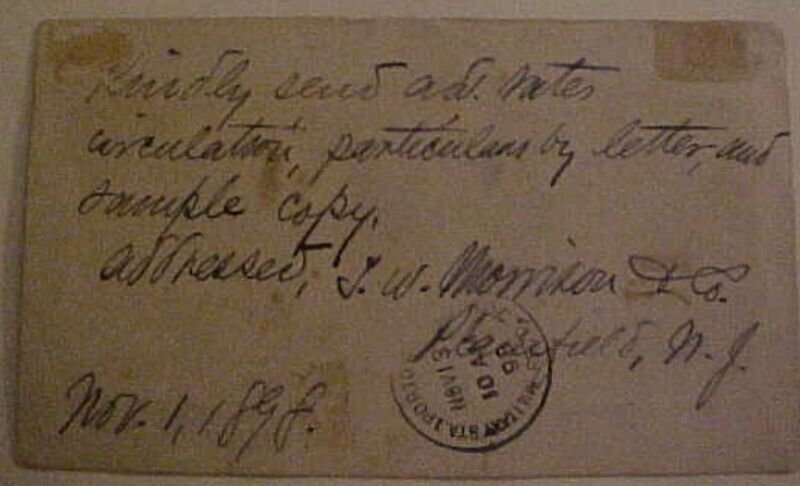 Kindly send ad. rates
circulation, particulars by letter, and
sample copy.
addressed, T. W. Morrison & Co.
Plainfield, N. J.
Nov. 1, 1898.
NOV 13
10 AM
98
MILITARY STA. 1 PORTO